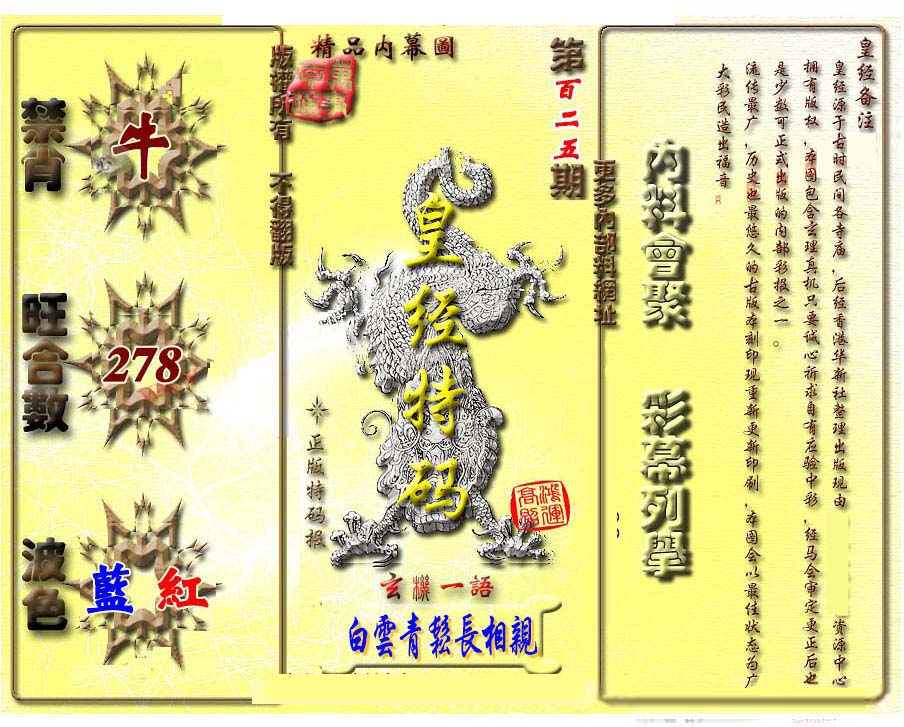 皇经备注
皇经源于古时民间各寺庙，后经香港华新社整理出版现由 资源中心
拥有版权，本图包含玄理真机只要诚心祈求自有应验中彩，经马会审定更正后也
是少数可正式出版的内部彩报之一。
流传最广，历史也最悠久的古版本刻印现重新更新印刷，本图会以最佳状态为广
大彩民造出福音
內料會聚 彩幕列舉
更多內部料網址
第百二五期
精品內幕圖
皇经特码
正版特码报
鴻運高照
玄機一語
白雲青鬆長相親
版權所有 不得翻版
禁肖
牛
旺合數
278
波色
藍 紅